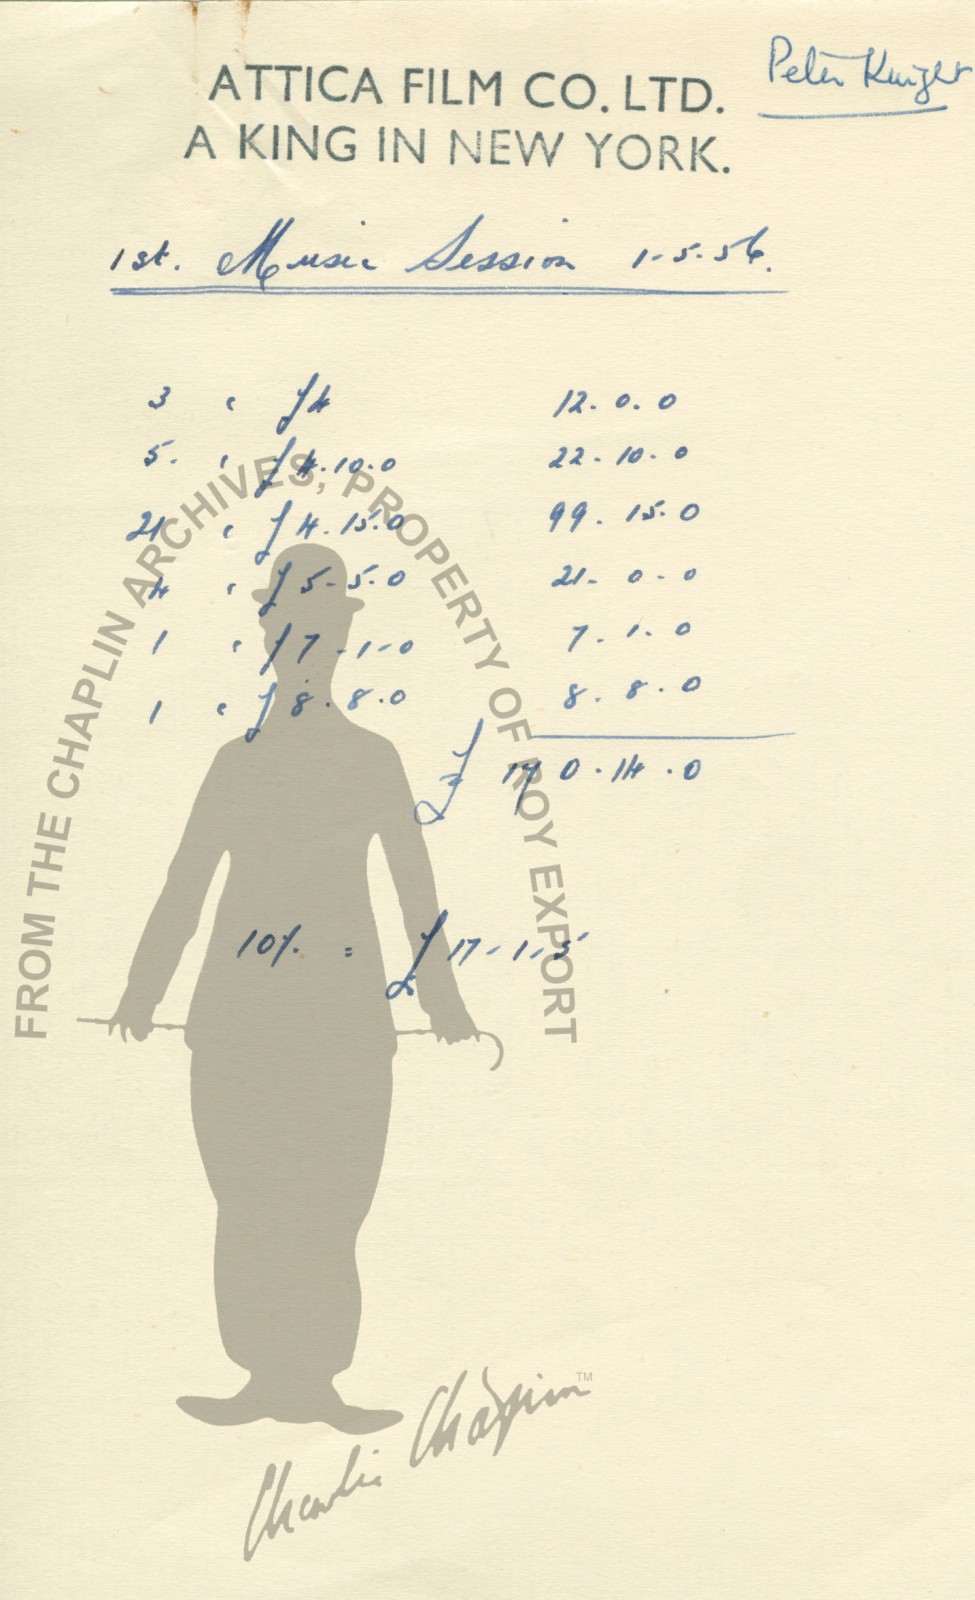 Peter Knight
ATTICA FILM CO. LTD.
A KING IN NEW YORK.
1st. Music Session 1-5-56.
3 " £4 12. 0. 0
5. " £4.10.0 22-10-0
21 " £4.15.0 99.15.0
4 " £5-5.0 21-0-0
1 " £7-1-0 7-1-0
1 " £8.8.0 8.8.0
£170.14.0
10% = £17-1-5
FROM THE CHAPLIN ARCHIVES, PROPERTY OF ROY EXPORT
Charlie Chaplin™